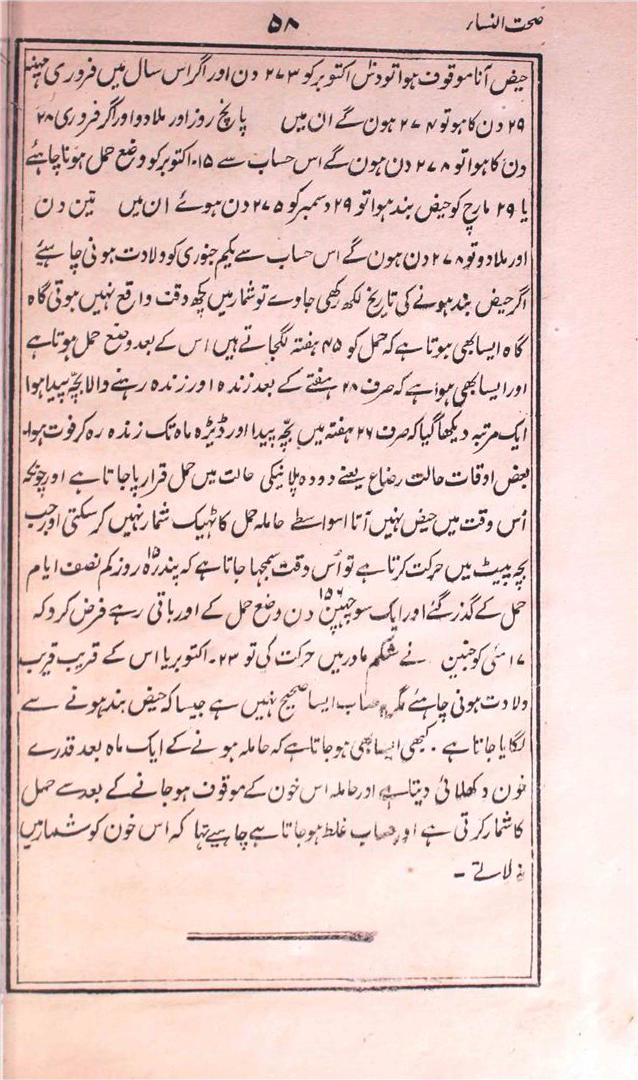 صحت النساء
۵۸
حیض آنا موقوف ہوا تو دس اکتوبر کو ۲۷۳ دن اور اگر اس سال میں فروری مہینہ
۲۹ دن کا ہو تو ۲۷۴ ہون گے ان میں پانچ روز اور ملا دو اور اگر فروری ۲۸
دن کا ہوا تو ۲۷۸ دن ہون گے اس حساب سے ۱۵۔ اکتوبر کو وضع حمل ہونا چاہئے
یا ۲۹ مارچ کو حیض بند ہوا تو ۲۹ دسمبر کو ۲۷۵ دن ہوئے ان میں تین دن
اور ملا دو تو ۲۷۸ دن ہون گے اس حساب سے یکم جنوری کو ولادت ہونی چاہیئے
اگر حیض بند ہونے کی تاریخ لکھ رکھی جاوے تو شمار میں کچھ دقت واقع نہیں ہوتی گاہ
گاہ ایسا بھی ہوتا ہے کہ حمل کو ۴۵ ہفتہ لگجاتے ہیں اس کے بعد وضع حمل ہوتا ہے
اور ایسا بھی ہوا ہے کہ صرف ۲۸ ہفتے کے بعد زندہ اور زندہ رہنے والا بچّہ پیدا ہوا
ایک مرتبہ دیکھا گیا کہ صرف ۲۶ ہفتہ میں بچّہ پیدا اور ڈیڑہ ماہ تک زندہ رہ کر فوت ہوا۔
بعض اوقات حالت رضاع یعنے دودہ پلانیکی حالت میں حمل قرار پا جاتا ہے اور چونکہ
اُس وقت میں حیض نہیں آتا اسواسطے حاملہ حمل کا ٹھیک شمار نہیں کر سکتی اور جب
بچہ پیٹ میں حرکت کرتا ہے تو اُس وقت سمجھا جاتا ہے کہ پندرہ ۱۵ روز کم نصف ایام
حمل کے گذر گئے اور ایک سو چھپن ۱۵۶ دن وضع حمل کے اور باقی رہے فرض کرو کہ
۱۷ مئی کو جنین نے شکم مادر میں حرکت کی تو ۲۳۔ اکتوبر یا اس کے قریب قریب
ولادت ہونی چاہئے مگر یہ حساب ایسا صحیح نہیں ہے جیسا کہ حیض بند ہونے سے
لگایا جاتا ہے۔ کبھی ایسا بھی ہو جاتا ہے کہ حاملہ ہونے کے ایک ماہ بعد قدرے
خون دکھلائی دیتا ہے اور حاملہ اس خون کے موقوف ہو جانے کے بعد سے حمل
کا شمار کرتی ہے اور حساب غلط ہو جاتا ہے چاہیے تہا کہ اس خون کو شمار میں
نہ لاتے ۔